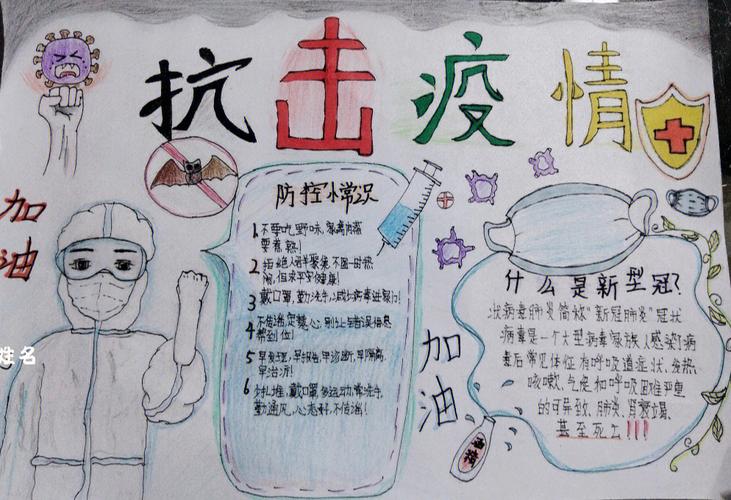 抗击疫情
加油
姓名
防控小常识
1 不要吃野味,家禽肉蛋
要煮熟!
2 拒绝人群聚集,不图一时热
闹,但求平安健康!
3 戴口罩,勤洗手,减少病毒进家门!
4 不传谣,定慧心,别让错误信息
5 早发现,早报告,早诊断,早隔离,
早治疗!
6 少扎堆,戴口罩,多运动,常洗手,
勤通风,心态好,不传谣!
加油
酒精
什么是新型冠?
状病毒肺炎简称“新冠肺炎”冠状
病毒是一个大型病毒家族人感染了病
毒后常见体征有呼吸道症状、发热、
咳嗽、气促和呼吸困难严重
的可导致、肺炎、肾衰竭、
甚至死亡!!!